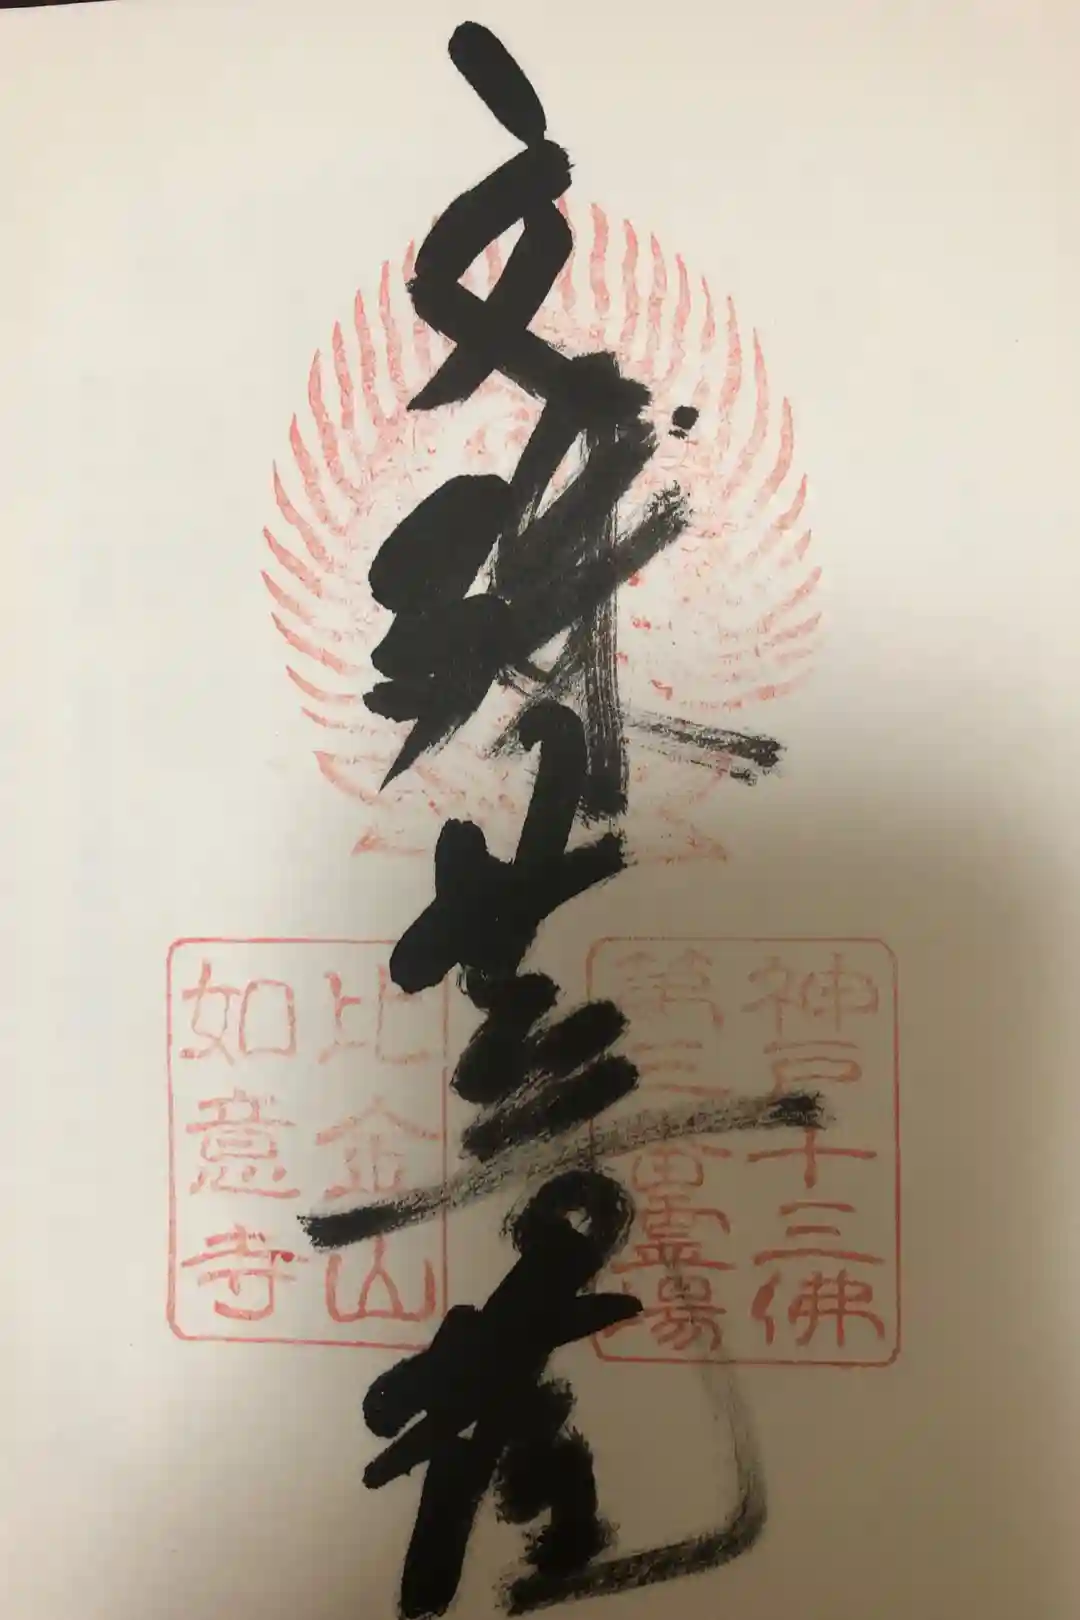 神戸十三佛
第三番霊場
文殊菩薩
比金山
如意寺